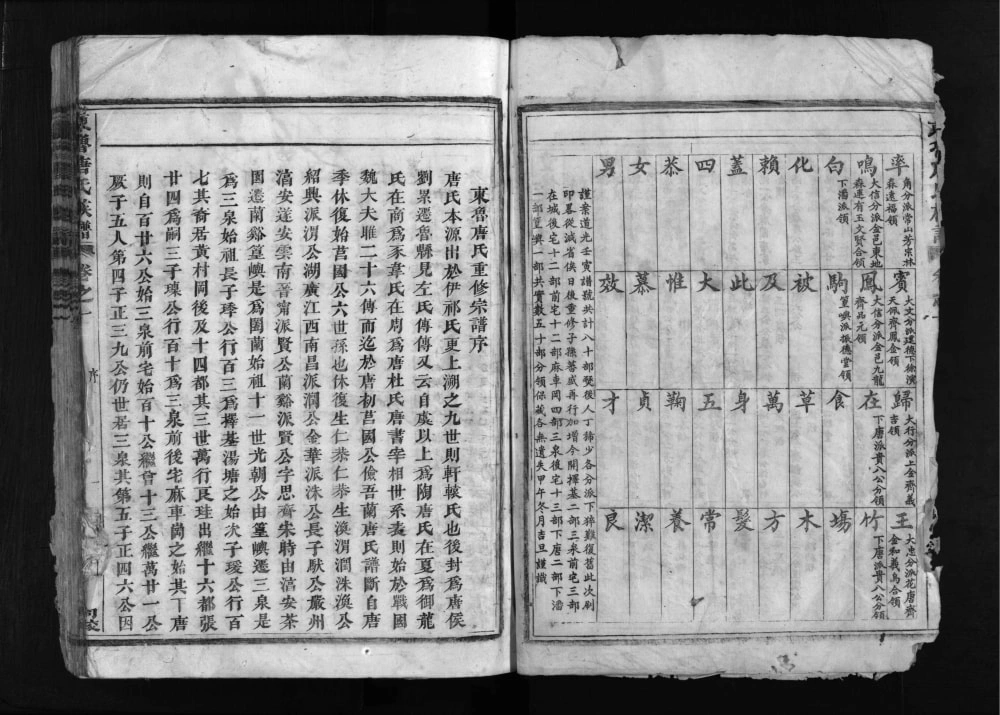 率賓歸王
角分派常山芳宗林
森遠福領
大文分派建德下徐演
天佩齊鳳金領
大行分派上金齊義
吉領
大忠分派花唐齊
金和義烏合領
鳴鳳在竹
大信分派金邑東地
森連有玉文賢合領
大信分派金邑九龍
齊品元領
下唐派貴八公分領
下唐派貴八公分領
白駒食場
下潘派領
篁嶼派振德堂領
化被草木
賴及萬方
蓋此身髮
四大五常
恭惟鞠養
女慕貞潔
男效才良
謹案道光壬寅譜號共計八十部發後人丁稀少各分派下猝難復舊此次刷
印畧從減省俟日後重修子孫蕃盛再行加增今開擇基二部三泉前宅三部
在城後宅十二部前宅十二部麻車岡四部三泉後宅十三部下唐二部下潘
一部篁嶼一部共實數五十部分領保藏各無遺失甲午冬月吉旦謹識
東魯唐氏族譜 卷之一 序 一
東魯唐氏重修宗譜序
唐氏本源出於伊祁氏更上溯之九世則軒轅氏也後封爲唐侯
劉累遷魯縣見左氏傳傳又云自虞以上爲陶唐氏在夏爲御龍
氏在商爲豕韋氏在周爲唐杜氏唐書宰相世系表則始於戰國
魏大夫雎二十六傳而迄於唐初莒國公儉吾蘭唐氏譜斷自唐
季休復始莒國公六世孫也休復生仁恭仁恭生渙渭澗洙渙公
紹興派渭公湖廣江西南昌派澗公金華派洙公長子猷公嚴州
淯安遂安雲南晉甯派賢公蘭谿派賢公字思齊朱時由淯安茶
園遷蘭谿篁嶼是爲閩蘭始祖十一世光朝公由篁嶼遷三泉是
爲三泉始祖長子琒公行百三爲擇基湯塘之始次子瑗公行百
七其裔居黃村岡後及十四都其三世萬行㞋珪出繼十六都張
廿四爲嗣三子瑓公行百十爲三泉前後宅麻車崗之始其下唐
則自百廿六公始三泉前宅始百十公繼曾十三公繼萬廿一公
厥子五人第四子正三九公仍世居三泉其第五子正四六公因